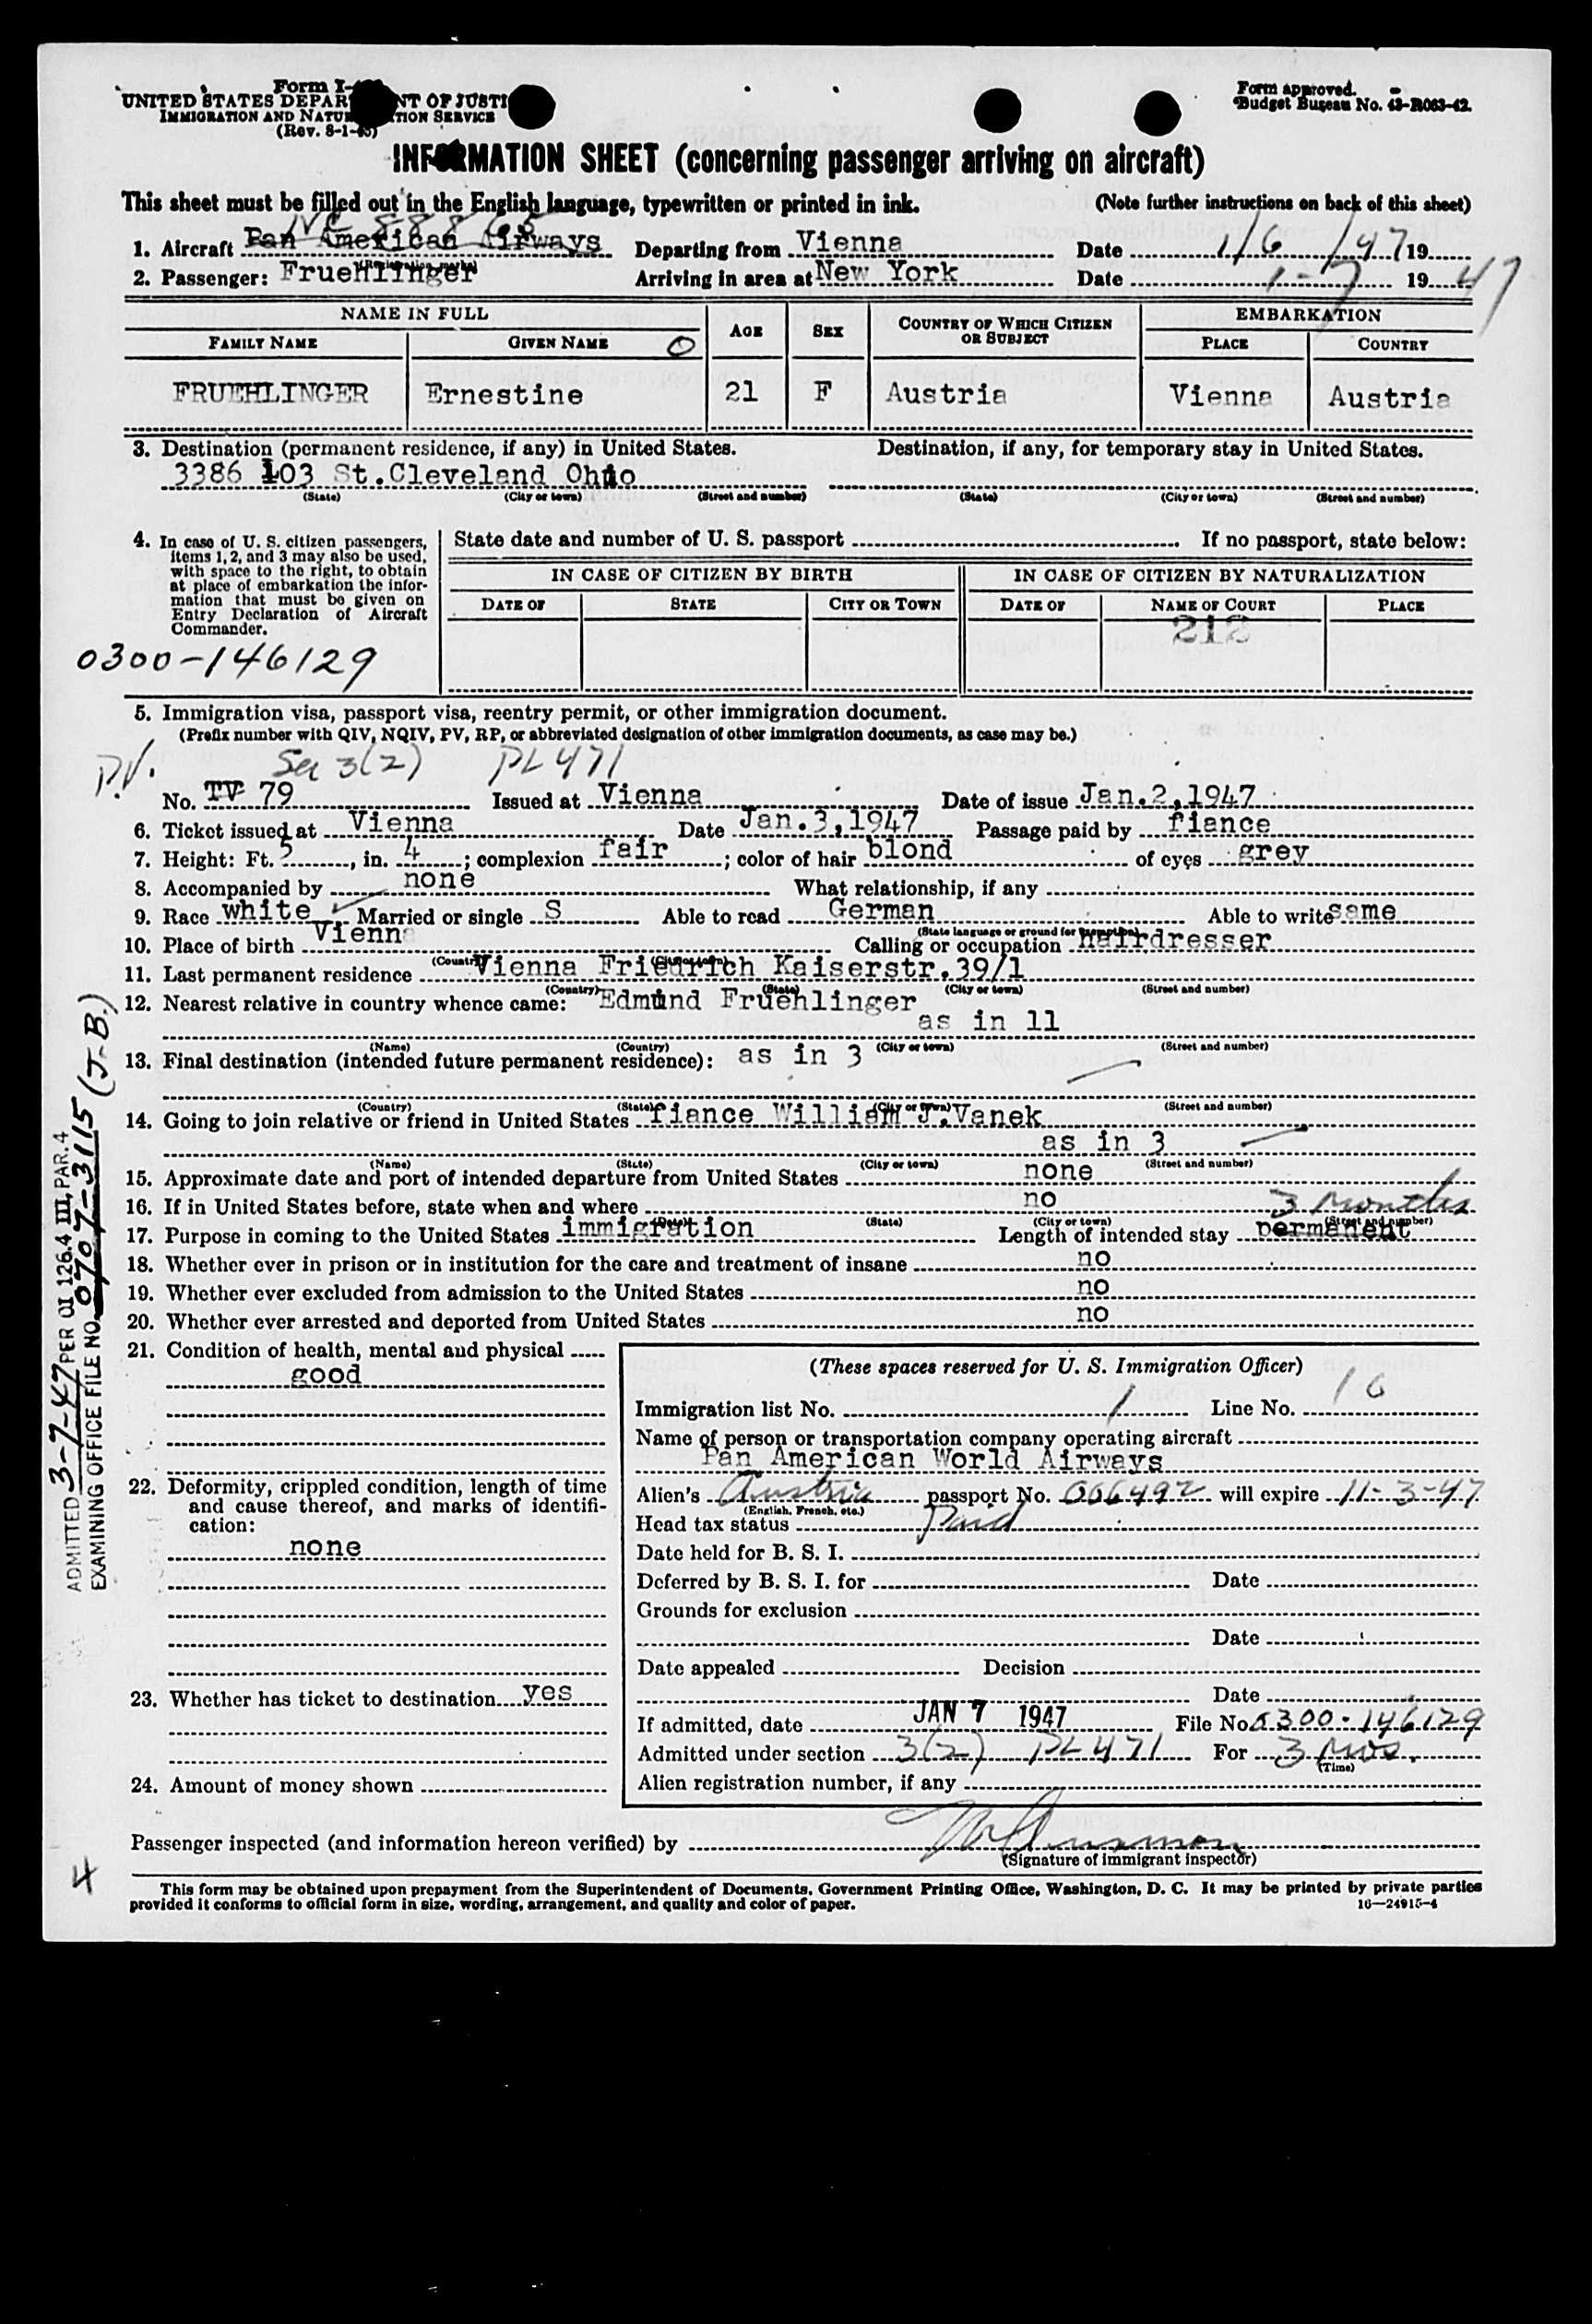 Form I-
UNITED STATES DEPAR NT OF JUSTI
IMMIGRATION AND NATU TION SERVICE
(Rev. 8-1-45)
Form approved.
Budget Bureau No. 43-R063-42.
INFORMATION SHEET (concerning passenger arriving on aircraft)
This sheet must be filled out in the English language, typewritten or printed in ink. (Note further instructions on back of this sheet)
NC 88865
1. Aircraft Pan American Airways Departing from Vienna Date 1/6/47 19
(Registration marks)
2. Passenger: Fruehlinger Arriving in area at New York Date 1-7 1947
NAME IN FULL AGE SEX COUNTRY OF WHICH CITIZEN OR SUBJECT EMBARKATION
FAMILY NAME GIVEN NAME O PLACE COUNTRY
FRUEHLINGER Ernestine 21 F Austria Vienna Austria
3. Destination (permanent residence, if any) in United States. Destination, if any, for temporary stay in United States.
3386 103 St.Cleveland Ohio
(State) (City or town) (Street and number) (State) (City or town) (Street and number)
4. In case of U. S. citizen passengers, items 1, 2, and 3 may also be used, with space to the right, to obtain at place of embarkation the information that must be given on Entry Declaration of Aircraft Commander.
State date and number of U. S. passport If no passport, state below:
IN CASE OF CITIZEN BY BIRTH IN CASE OF CITIZEN BY NATURALIZATION
DATE OF STATE CITY OR TOWN DATE OF NAME OF COURT PLACE
212
0300-146129
5. Immigration visa, passport visa, reentry permit, or other immigration document.
(Prefix number with QIV, NQIV, PV, RP, or abbreviated designation of other immigration documents, as case may be.)
P.V. Sec 3(2) PL 471
No. TV 79 Issued at Vienna Date of issue Jan.2,1947
6. Ticket issued at Vienna Date Jan.3,1947 Passage paid by fiance
7. Height: Ft. 5, in. 4; complexion fair; color of hair blond of eyes grey
8. Accompanied by none What relationship, if any
9. Race white Married or single S Able to read German Able to write same
(State language or ground for exemption)
10. Place of birth Vienna Calling or occupation hairdresser
(Country) (City or town)
11. Last permanent residence Vienna Friedrich Kaiserstr.39/1
(Country) (State) (City or town) (Street and number)
12. Nearest relative in country whence came: Edmund Fruehlinger
as in 11
(Name) (Country) (City or town) (Street and number)
13. Final destination (intended future permanent residence): as in 3
(Country) (State) (City or town) (Street and number)
14. Going to join relative or friend in United States fiance William J.Vanek
as in 3
(Name) (State) (City or town) (Street and number)
15. Approximate date and port of intended departure from United States none
16. If in United States before, state when and where no
3 Months
(Date) (State) (City or town) (Street and number)
17. Purpose in coming to the United States immigration Length of intended stay permanent
18. Whether ever in prison or in institution for the care and treatment of insane no
19. Whether ever excluded from admission to the United States no
20. Whether ever arrested and deported from United States no
21. Condition of health, mental and physical
good
22. Deformity, crippled condition, length of time
and cause thereof, and marks of identifi-
cation:
none
23. Whether has ticket to destination yes
24. Amount of money shown
(These spaces reserved for U. S. Immigration Officer)
Immigration list No. 1 Line No. 16
Name of person or transportation company operating aircraft
Pan American World Airways
Alien's Austria passport No. 066492 will expire 11-3-47
(English, French, etc.)
Head tax status Paid
Date held for B. S. I.
Deferred by B. S. I. for Date
Grounds for exclusion
Date
Date appealed Decision
Date
If admitted, date JAN 7 1947 File No. 0300-146129
Admitted under section 3(2) PL 471 For 3 Mos.
(Time)
Alien registration number, if any
Passenger inspected (and information hereon verified) by
(Signature of immigrant inspector)
4
This form may be obtained upon prepayment from the Superintendent of Documents, Government Printing Office, Washington, D. C. It may be printed by private parties
provided it conforms to official form in size, wording, arrangement, and quality and color of paper. 16—24915-4
ADMITTED 3-7-47 PER OI 126.4 III, PAR. 4
EXAMINING OFFICE FILE NO. 0707-3115 (J.B.)